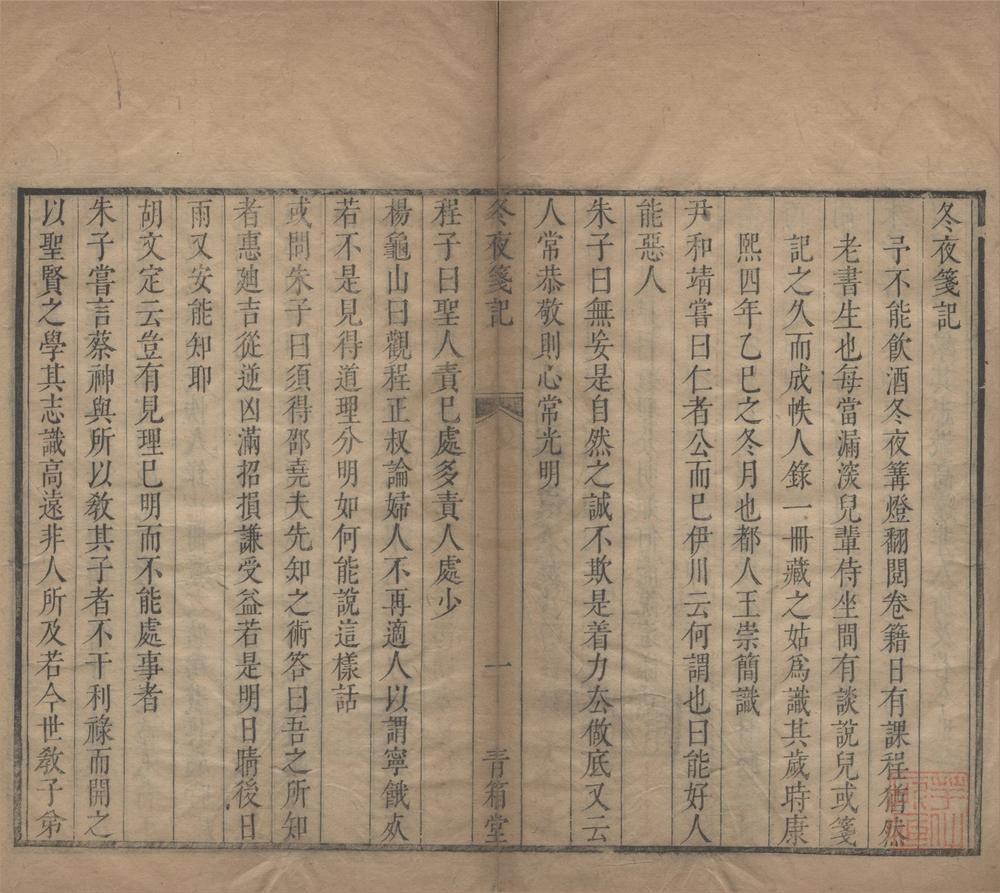 冬夜箋記
予不能飲酒冬夜篝燈翻閱卷籍日有課程猶然
老書生也每當漏深兒輩侍坐間有談說兒或箋
記之久而成帙人錄一冊藏之姑爲識其歲時康
熙四年乙巳之冬月也都人王崇簡識
尹和靖嘗曰仁者公而已伊川云何謂也曰能好人
能惡人
朱子曰無妄是自然之誠不欺是着力去做底又云
人常恭敬則心常光明
冬夜箋記 一 青箱堂
程子曰聖人責已處多責人處少
楊龜山曰觀程正叔論婦人不再適人以謂寧餓死
若不是見得道理分明如何能說這樣話
或問朱子曰須得邵堯夫先知之術答曰吾之所知
者惠廸吉從逆凶滿招損謙受益若是明日晴後日
雨又安能知耶
胡文定云豈有見理已明而不能處事者
朱子嘗言蔡神與所以敎其子者不干利祿而開之
以聖賢之學其志識高遠非人所及若今世敎子弟